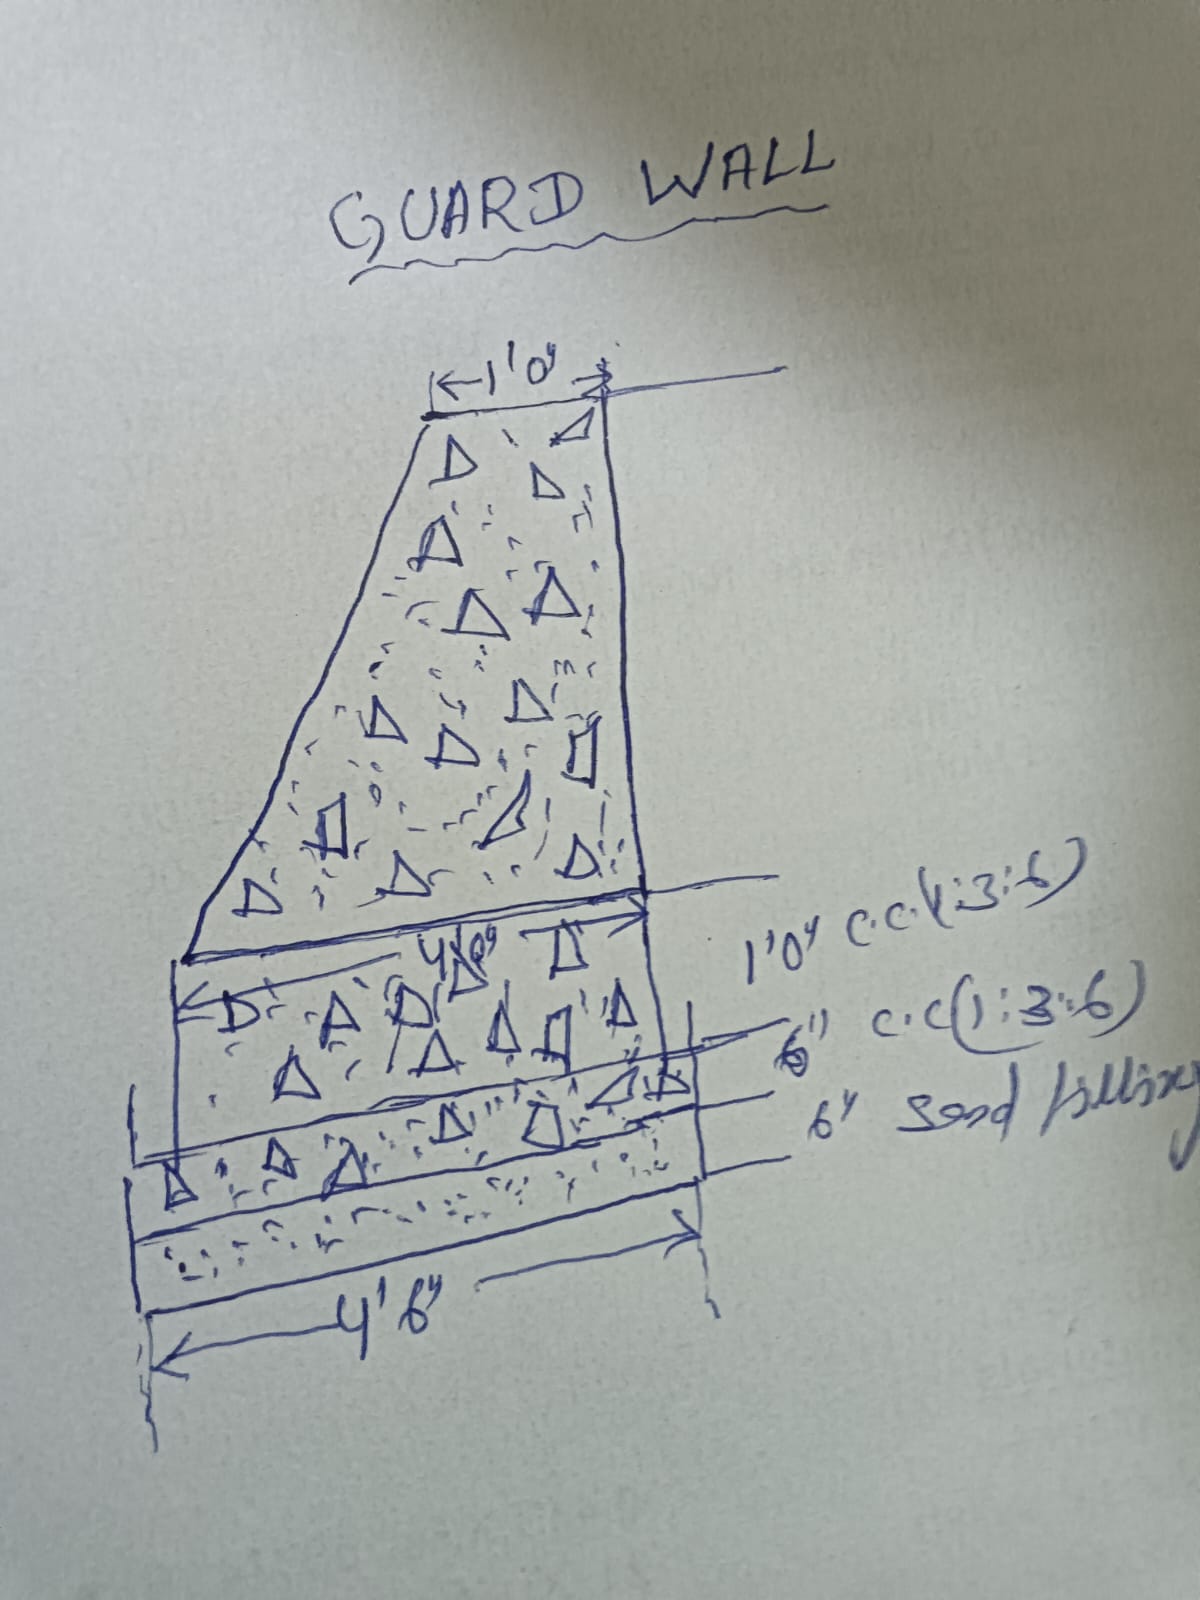 GUARD WALL
1'0"
4'0"
1'0" C.C.(1:3:6)
6" C.C(1:3:6)
6" Sand filling
4'6"